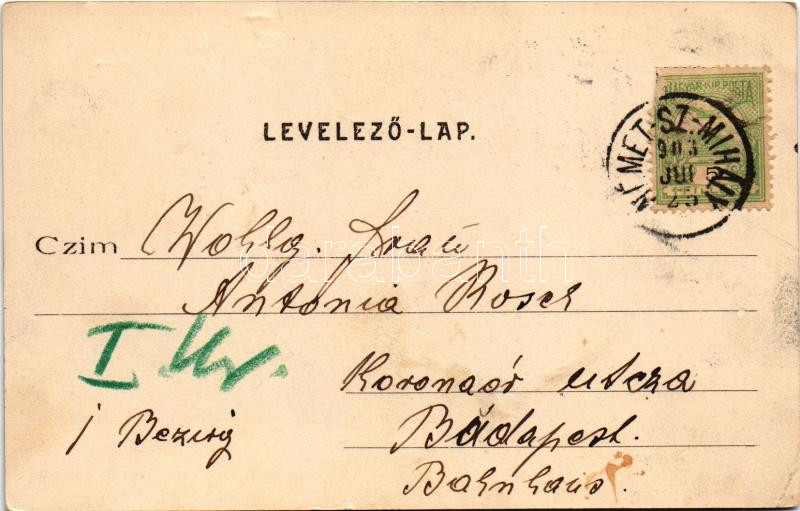 LEVELEZŐ-LAP.
MAGYAR·KIR·POSTA
NÉMET-SZ-MIHÁLY
903
JUL
25
5
Czim Wohlg. Frau
Antonia Roser
I
Koronaőr utcza
Budapest.
Bahnhaus.
I Bezirg
darabanth